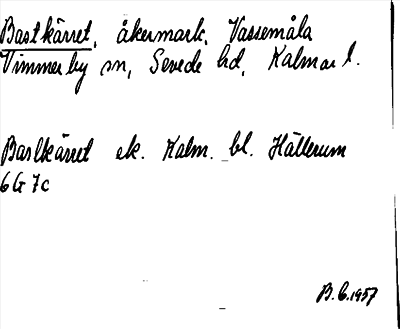 Bastkärret, åkermark, Vassemåla
Vimmerby sn, Sevede hd, Kalmar l.
Bastkärret ek. Kalm. bl. Hällerum
6G 7c
B.C. 1957